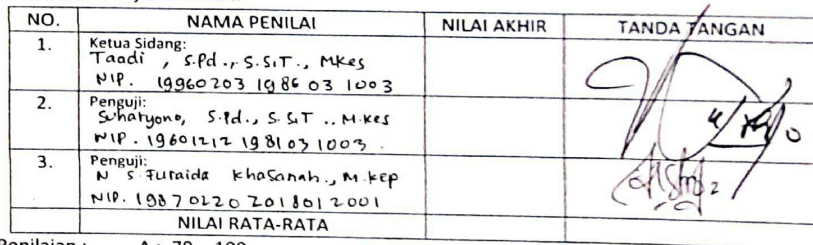 NO. NAMA PENILAI NILAI AKHIR TANDA TANGAN
1. Ketua Sidang:
Taadi, S.Pd., S.SiT., MKes
NIP. 19960203 1986 03 1003
2. Penguji:
Suharyono, S.Pd., S.SiT.. M.Kes
NIP. 19601212 198103 1003.
3. Penguji:
N S Furaida Khasanah., M.Kep
NIP. 19870220 201801 2001
NILAI RATA-RATA
Penilaian : A : 79 - 100